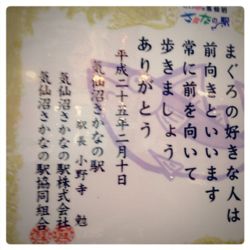 さかなの駅
まぐろの好きな人は
前向きといいます
常に前を向いて
歩きましょう
ありがとう
平成二十五年二月十日
気仙沼さかなの駅
駅長 小野寺 勉
気仙沼さかなの駅株式会社
気仙沼さかなの駅協同組合